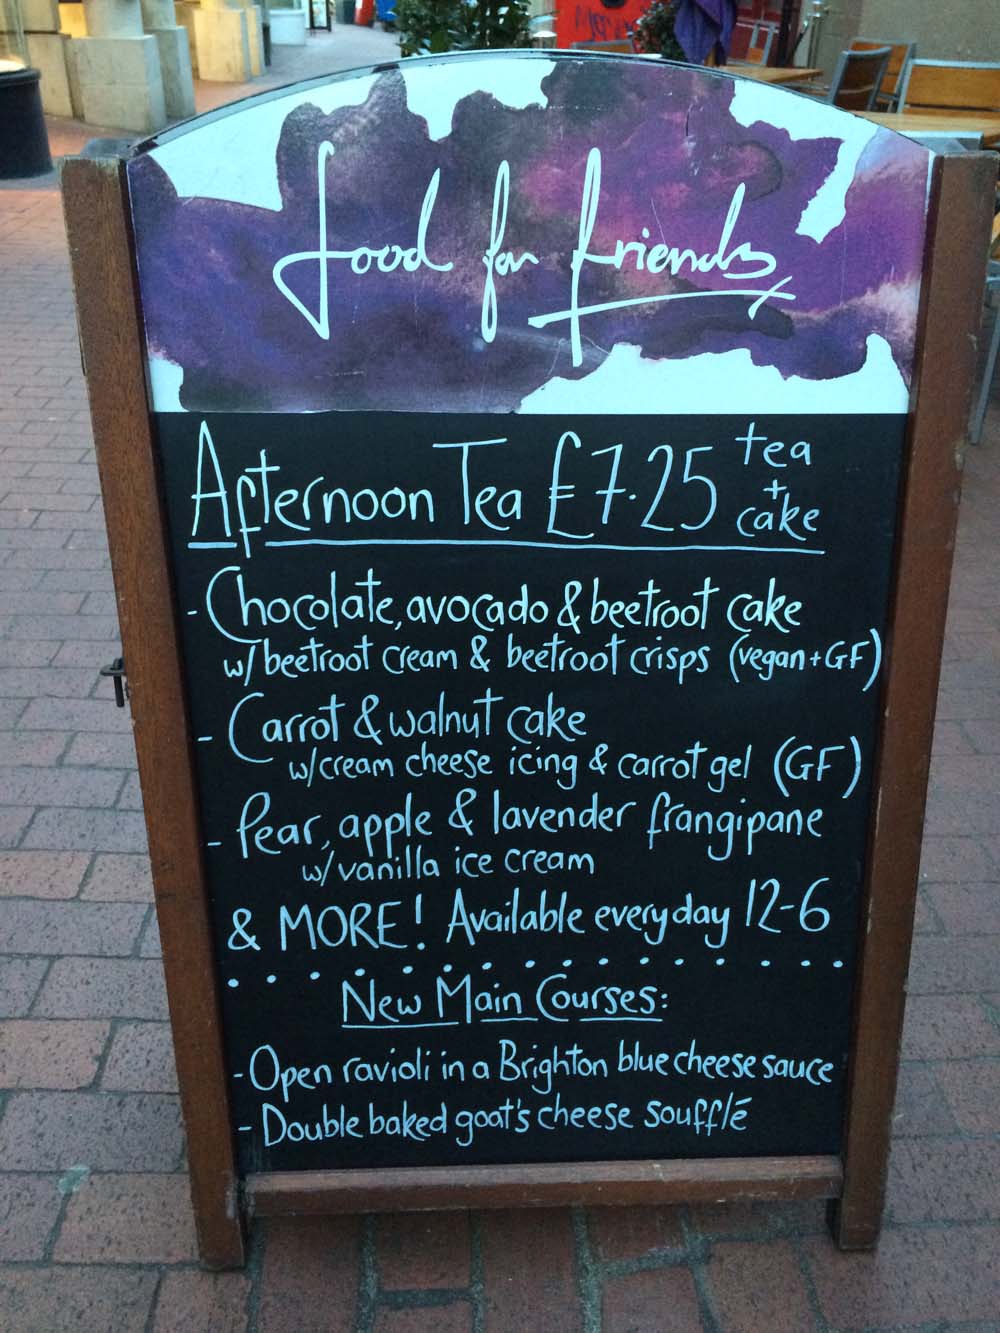 food for friends
Afternoon Tea £7.25 tea + cake
- Chocolate, avocado & beetroot cake
w/ beetroot cream & beetroot crisps (vegan + GF)
- Carrot & walnut cake
w/ cream cheese icing & carrot gel (GF)
- Pear, apple & lavender frangipane
w/ vanilla ice cream
& MORE! Available everyday 12-6
New Main Courses:
- Open ravioli in a Brighton blue cheese sauce
- Double baked goat's cheese soufflé